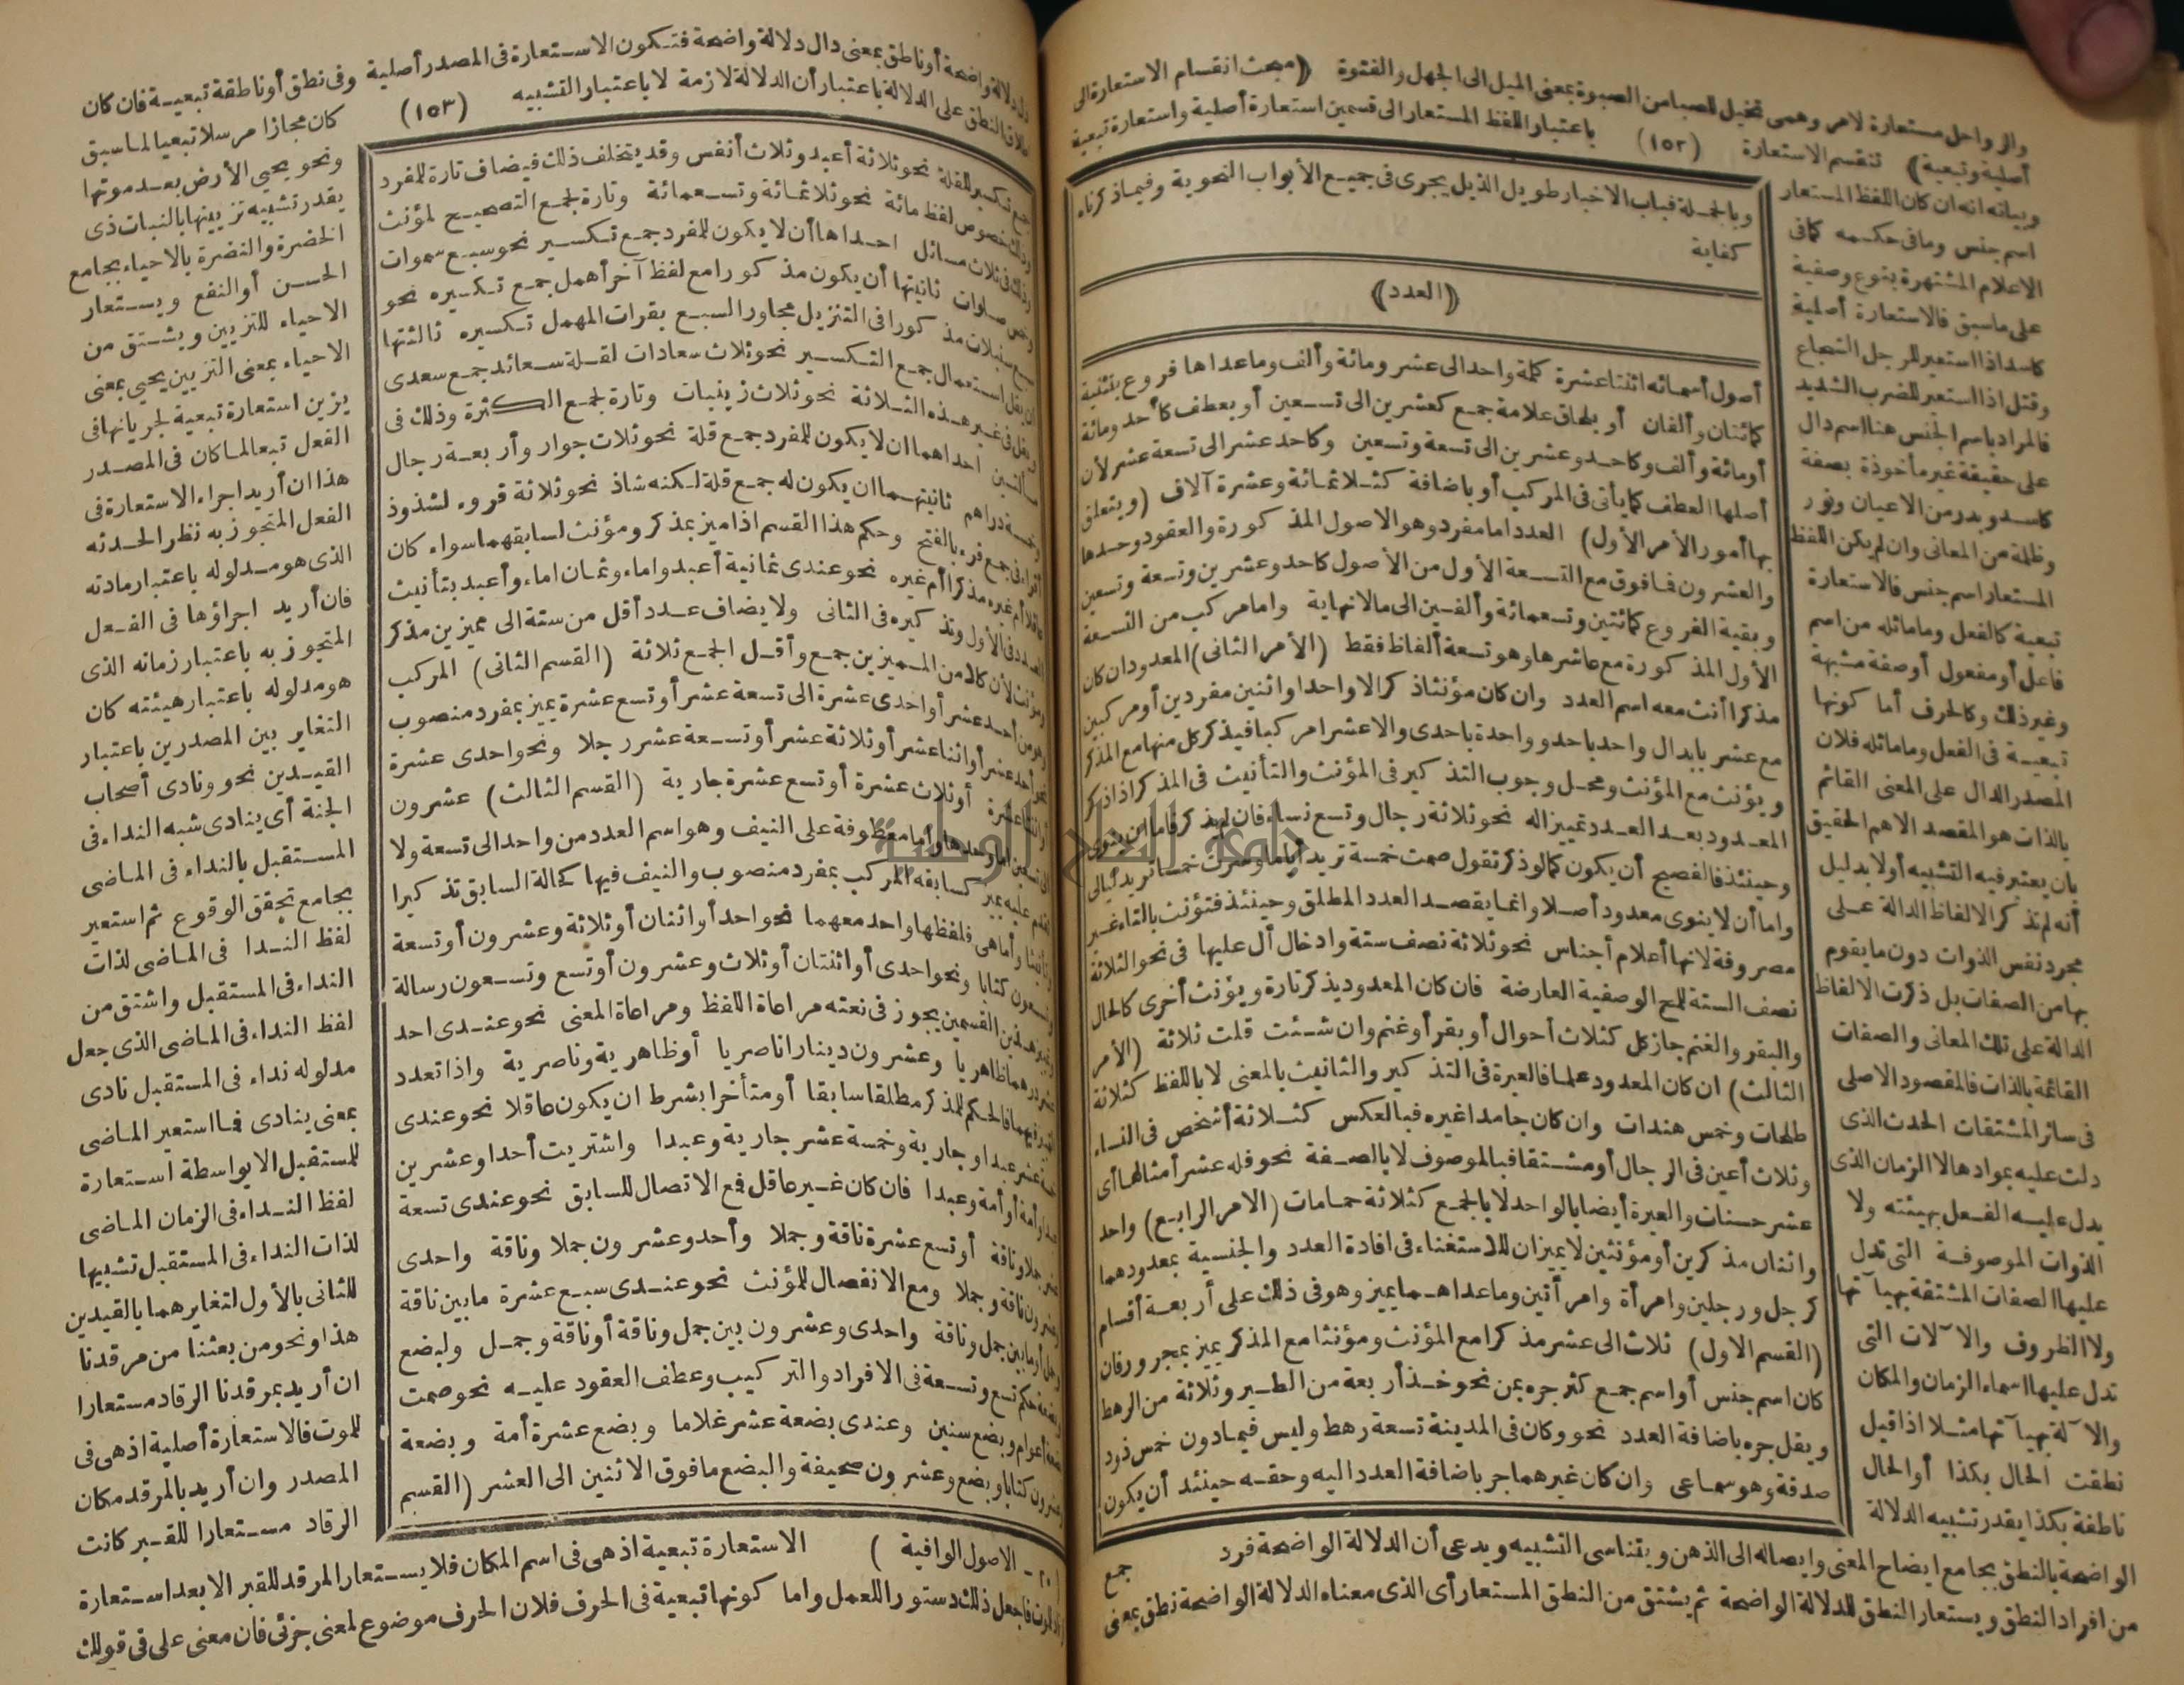 والرواحل مستعارة لامر وهمى تخيل للصبا من الصبوة بمعنى الميل الى الجهل والفتوة (مبحث انقسام الاستعارة الى
أصلية وتبعية) تنقسم الاستعارة (١٥٢) باعتبار اللفظ المستعار الى قسمين استعارة أصلية واستعارة تبعية
وبيانه انه ان كان اللفظ المستعار
اسم جنس وما فى حكمه كما فى
الاعلام المشتهرة بنوع وصفية
على ما سبق فالاستعارة أصلية
كاسد اذا استعير للرجل الشجاع
وقتل اذا استعير للضرب الشديد
فالمراد باسم الجنس هنا اسم دال
على حقيقة غير مأخوذة بصفة
كاسد وبدر من الاعيان ونور
وظلمة من المعانى وان لم يكن اللفظ
المستعار اسم جنس فالاستعارة
تبعية كالفعل وما ماثله من اسم
فاعل أو مفعول أو صفة مشبهة
وغير ذلك وكالحرف أما كونها
تبعية فى الفعل وما ماثله فلان
المصدر الدال على المعنى القائم
بالذات هو المقصد الاهم الحقيق
بأن يعتبر فيه التشبيه أولا بدليل
أنه لم تذكر الالفاظ الدالة على
مجرد نفس الذوات دون ما يقوم
بها من الصفات بل ذكرت الالفاظ
الدالة على تلك المعانى والصفات
القائمة بالذات فالمقصود الاصلى
فى سائر المشتقات الحدث الذى
دلت عليه بموادها لا الزمان الذى
يدل عليه الفعل بهيئته ولا
الذوات الموصوفة التى تدل
عليها الصفات المشتقة بهيآتها
ولا الظروف والآلات التى
تدل عليها اسماء الزمان والمكان
والآلة بهيآتها مثلا اذا قيل
نطقت الحال بكذا أو الحال
ناطقة بكذا يقدر تشبيه الدلالة
الواضحة بالنطق بجامع ايضاح المعنى وايصاله الى الذهن ويتناسى التشبيه ويدعى أن الدلالة الواضحة فرد
من افراد النطق ويستعار النطق للدلالة الواضحة ثم يشتق من النطق المستعار أى الذى معناه الدلالة الواضحة نطق بمعنى
جمع
وبالجملة فباب الاخبار طويل الذيل يجرى فى جميع الأبواب النحوية وفيما ذكرناه
كفاية
(العدد)
أصول أسمائه اثنتا عشرة كلمة واحد الى عشر ومائة وألف وما عداها فروع بتثنية
كمائتان وألفان أو بلحاق علامة جمع كعشرين الى تسعين أو بعطف كأحد ومائة
أو مائة وألف وكاحد وعشرين الى تسعة وتسعين وكاحد عشر الى تسعة عشر لأن
أصلها العطف كما يأتى فى المركب أو باضافة كثلاثمائة وعشرة آلاف (ويتعلق
بها أمور الأمر الأول) العدد اما مفرد وهو الاصول المذكورة والعقود وحدها
والعشرون فما فوق مع التسعة الأول من الأصول كاحد وعشرين وتسعة وتسعين
وبقية الفروع كمائتين وتسعمائة وألفين الى مالانهاية واما مركب من التسعة
الأول المذكورة مع عاشرها وهو تسعة ألفاظ فقط (الأمر الثانى) المعدود ان كان
مذكرا أنث معه اسم العدد وان كان مؤنثا ذكر الا واحدا واثنين مفردين أو مركبين
مع عشر بابدال واحد باحد وواحدة باحدى والا عشرا مركبا فيذكر كل منها مع المذكر
ويؤنث مع المؤنث ومحل وجوب التذكير فى المؤنث والتأنيث فى المذكر اذا ذكر
المعدود بعد العدد تمييزا له نحو ثلاثة رجال وتسع نساء فان لم يذكر فاما ان ينوى
وحينئذ فالفصيح أن يكون كما لو ذكر تقول صمت خمسة تريد أياما وسرت خمسا تريد ليالى
واما أن لا ينوى معدود أصلا وانما يقصد العدد المطلق وحينئذ فتؤنث بالتاء غير
مصروفة لانها أعلام أجناس نحو ثلاثة نصف ستة وادخال أل عليها فى نحو الثلاثة
نصف الستة للمح الوصفية العارضة فان كان المعدود يذكر تارة ويؤنث أخرى كالحال
والبقر والغنم جاز كل كثلاث أحوال أو بقر أو غنم وان شئت قلت ثلاثة (الأمر
الثالث) ان كان المعدود علما فالعبرة فى التذكير والتأنيث بالمعنى لا باللفظ كثلاثة
طلحات وخمس هندات وان كان جامدا غيره فبالعكس كثلاثة أشخص فى النساء
وثلاث أعين فى الرجال أو مشتقا فبالموصوف لا بالصفة نحو فله عشر أمثالها أى
عشر حسنات والعبرة أيضا بالواحد لا بالجمع كثلاثة حمامات (الامر الرابع) واحد
واثنان مذكرين أو مؤنثين لا يميزان للاستغناء فى افادة العدد والجنسية بمعدودهما
كرجل ورجلين وامرأة وامرأتين وما عداهما يميز وهو فى ذلك على أربعة أقسام
(القسم الاول) ثلاث الى عشر مذكرا مع المؤنث ومؤنثا مع المذكر يميز بمجرور فان
كان اسم جنس أو اسم جمع كثر جره بمن نحو خذ أربعة من الطير وثلاثة من الرهط
ويقل جره باضافة العدد نحو وكان فى المدينة تسعة رهط وليس فيما دون خمس ذود
صدقة وهو سماعى وان كان غيرهما جر باضافة العدد اليه وحقه حينئذ أن يكون
دل دلالة واضحة أو ناطق بمعنى دال دلالة واضحة فتكون الاستعارة فى المصدر أصلية وفى نطق أو ناطقة تبعية فان كان
اطلاق النطق على الدلالة باعتبار أن الدلالة لازمة لا باعتبار التشبيه (١٥٣) كان مجازا مرسلا تبعيا لما سبق
ونحو يحيى الأرض بعد موتها
يقدر تشبيه تزيينها بالنبات ذى
الخضرة والنضرة بالاحياء بجامع
الحسن أو النفع ويستعار
الاحياء للتزيين ويشتق من
الاحياء بمعنى التزيين يحيى بمعنى
يزين استعارة تبعية لجريانها فى
الفعل تبعا لما كان فى المصدر
هذا ان أريد اجراء الاستعارة فى
الفعل المتجوز به نظرا لحدثه
الذى هو مدلوله باعتبار مادته
فان أريد اجراؤها فى الفعل
المتجوز به باعتبار زمانه الذى
هو مدلوله باعتبار هيئته كان
التغاير بين المصدرين باعتبار
القيدين نحو ونادى أصحاب
الجنة أى ينادى شبه النداء فى
المستقبل بالنداء فى الماضى
بجامع تحقق الوقوع ثم استعير
لفظ الندا فى الماضى لذات
النداء فى المستقبل واشتق من
لفظ النداء فى الماضى الذى جعل
مدلوله نداء فى المستقبل نادى
بمعنى ينادى فما استعير الماضى
للمستقبل الا بواسطة استعارة
لفظ النداء فى الزمان الماضى
لذات النداء فى المستقبل تشبيها
للثانى بالأول لتغايرهما بالقيدين
هذا ونحو من بعثنا من مرقدنا
ان أريد بمرقدنا الرقاد مستعارا
للموت فالاستعارة أصلية اذ هى فى
المصدر وان أريد بالمرقد مكان
الرقاد مستعارا للقبر كانت
الاستعارة تبعية اذ هى فى اسم المكان فلا يستعار المرقد للقبر الا بعد استعارة
الرقاد للموت فاجعل ذلك دستورا للعمل واما كونها تبعية فى الحرف فلان الحرف موضوع لمعنى جزئى فان معنى على فى قولك
جمع تكسير للقلة نحو ثلاثة أعبد وثلاث أنفس وقد يتخلف ذلك فيضاف تارة للمفرد
وذلك خصوص لفظ مائة نحو ثلاثمائة وتسعمائة وتارة لجمع التصحيح لمؤنث
وذلك فى ثلاث مسائل احداها أن لا يكون للمفرد جمع تكسير نحو سبع سموات
وخمس صلوات ثانيتها أن يكون مذكورا مع لفظ آخر أهمل جمع تكسيره نحو
سبع سنبلات مذكورا فى التنزيل مجاور السبع بقرات المهمل تكسيره ثالثتها
أن يقل استعمال جمع التكسير نحو ثلاث سعادات لقلة سعائد جمع سعدى
ويقل فى غير هذه الثلاثة نحو ثلاث زينبات وتارة لجمع الكثرة وذلك فى
مسألتين احداهما ان لا يكون للمفرد جمع قلة نحو ثلاث جوار وأربعة رجال
وخمسة دراهم ثانيتهما ان يكون له جمع قلة لكنه شاذ نحو ثلاثة قروء لشذوذ
اقراء فى جمع قرء بالفتح وحكم هذا القسم اذا ميز بمذكر ومؤنث لسابقهما سواء كان
عاقلا أم غيره مذكرا أم غيره نحو عندى ثمانية أعبد واماء وثمان اماء وأعبد بتأنيث
العدد فى الأول وتذكيره فى الثانى ولا يضاف عدد أقل من ستة الى مميزين مذكر
ومؤنث لأن كلا من المميزين جمع وأقل الجمع ثلاثة (القسم الثانى) المركب
وهو من أحد عشر أو احدى عشرة الى تسعة عشر أو تسع عشرة يميز بمفرد منصوب
نحو أحد عشر أو اثنا عشر أو ثلاثة عشر أو تسعة عشر رجلا ونحو احدى عشرة
أو اثنتا عشرة أو ثلاث عشرة أو تسع عشرة جارية (القسم الثالث) عشرون
الى تسعين اما وحدها وأما معطوفة على النيف وهو اسم العدد من واحد الى تسعة ولا
يتقدم عليه يميز كسابقه المركب بمفرد منصوب والنيف فيها كحالة السابق تذكيرا
وتأنيثا وأما هى فلفظها واحد معهما نحو واحد أو اثنان أو ثلاثة وعشرون أو تسعة
وتسعون كتابا ونحو احدى أو اثنتان أو ثلاث وعشرون أو تسع وتسعون رسالة
وتمييز هذين القسمين يجوز فى نعته مراعاة اللفظ ومراعاة المعنى نحو عندى احد
عشر درهما ظاهريا وعشرون دينارا ناصريا أو ظاهرية وناصرية واذا تعدد
المميز فيهما فالحكم للمذكر مطلقا سابقا أو متأخرا بشرط ان يكون عاقلا نحو عندى
خمسة عشر عبدا وجارية وخمسة عشر جارية وعبدا واشتريت أحدا وعشرين
عبدا وأمة أو أمة وعبدا فان كان غير عاقل فمع الاتصال للسابق نحو عندى تسعة
عشر جملا وناقة أو تسع عشرة ناقة وجملا وأحد وعشرون جملا وناقة واحدى
وعشرون ناقة وجملا ومع الانفصال للمؤنث نحو عندى سبع عشرة ما بين ناقة
وجمل أو ما بين جمل وناقة واحدى وعشرون بين جمل وناقة أو ناقة وجمل ولبضع
وبضعة حكم تسع وتسعة فى الافراد والتركيب وعطف العقود عليه نحو صمت
بضعة أعوام وبضع سنين وعندى بضعة عشر غلاما وبضع عشرة أمة وبضعة
وعشرون كتابا وبضع وعشرون صحيفة والبضع ما فوق الاثنين الى العشر (القسم
٢٠ - الاصول الوافية )
جامعة النجاح الوطنية